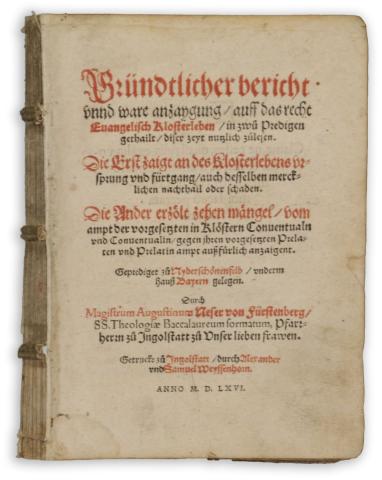 Gründtlicher bericht
vnnd ware anzaygung / auff das recht
Euangelisch Klosterleben / in zwů Predigen
gethailt / diser zeyt nutzlich zůlesen.
Die Erst zaigt an des Klosterlebens vr-
sprung vnd fürtgang / auch desselben merck-
lichen nachthail oder schaden.
Die Ander erzölt zehen mängel / vom
ampt der vorgesetzten in Klöstern Conuentualn
vnd Conuentualin / gegen jhren vorgesetzten Prela-
ten vnd Prelatin ampt außfürlich anzaigent.
Geprediget zů Nyderschönenfeld / vnderm
Hauß Bayern gelegen.
Durch
Magistrum Augustinum Neser von Fürstenberg /
SS. Theologiæ Baccalaureum formatum, Pfarr-
herrn zů Ingolstatt zů Vnser lieben frawen.
Getruckt zů Ingolstatt / durch Alexander
vnd Samuel Weyssenhorn.
ANNO M. D. LXVI.